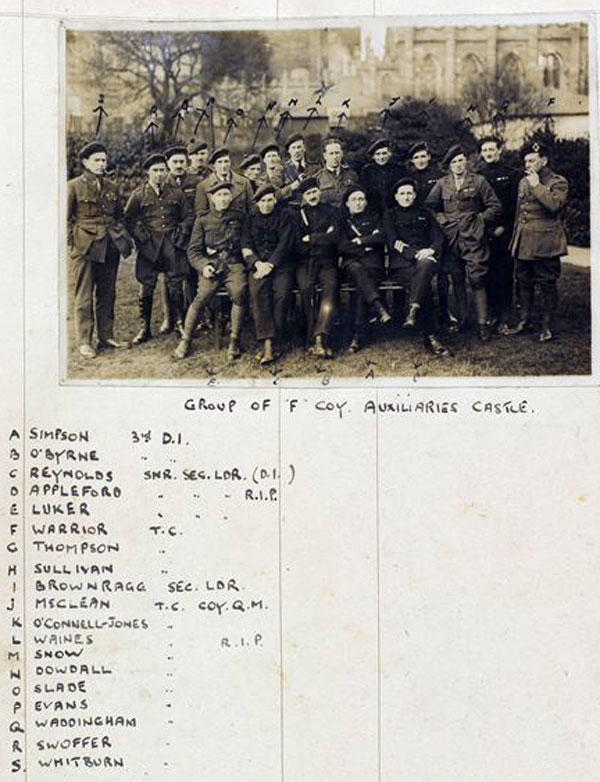 S
K
J
F
E
C
B
A
GROUP OF 'F' COY. AUXILIARIES CASTLE.
A SIMPSON 3rd D.I.
B O'BYRNE " "
C REYNOLDS SNR. SEC. LDR. (D.I.)
D APPLEFORD " " " R.I.P.
E LUKER " " "
F WARRIOR T.C.
G THOMPSON "
H SULLIVAN "
I BROWNRAGG SEC. LDR.
J McCLEAN T.C. COY. Q.M.
K O'CONNELL-JONES "
L WAINES " R.I.P.
M SNOW "
N DOWDALL "
O SLADE "
P EVANS "
Q WADDINGHAM "
R SWOFFER "
S. WHITBURN "